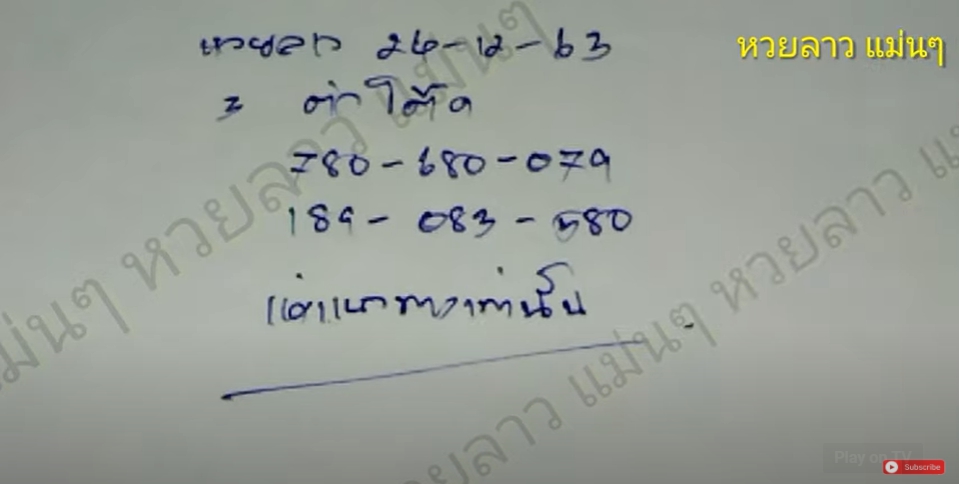 หวยลาว 24-12-63
หวยลาว แม่นๆ
3 ตัวโต๊ด
780-680-079
189-083-580
แค่แนวทางเท่านั้น
แม่นๆ หวยลาว แม่นๆ
ยลาว แม่นๆ หวยลาว แม
Play on TV
Subscribe